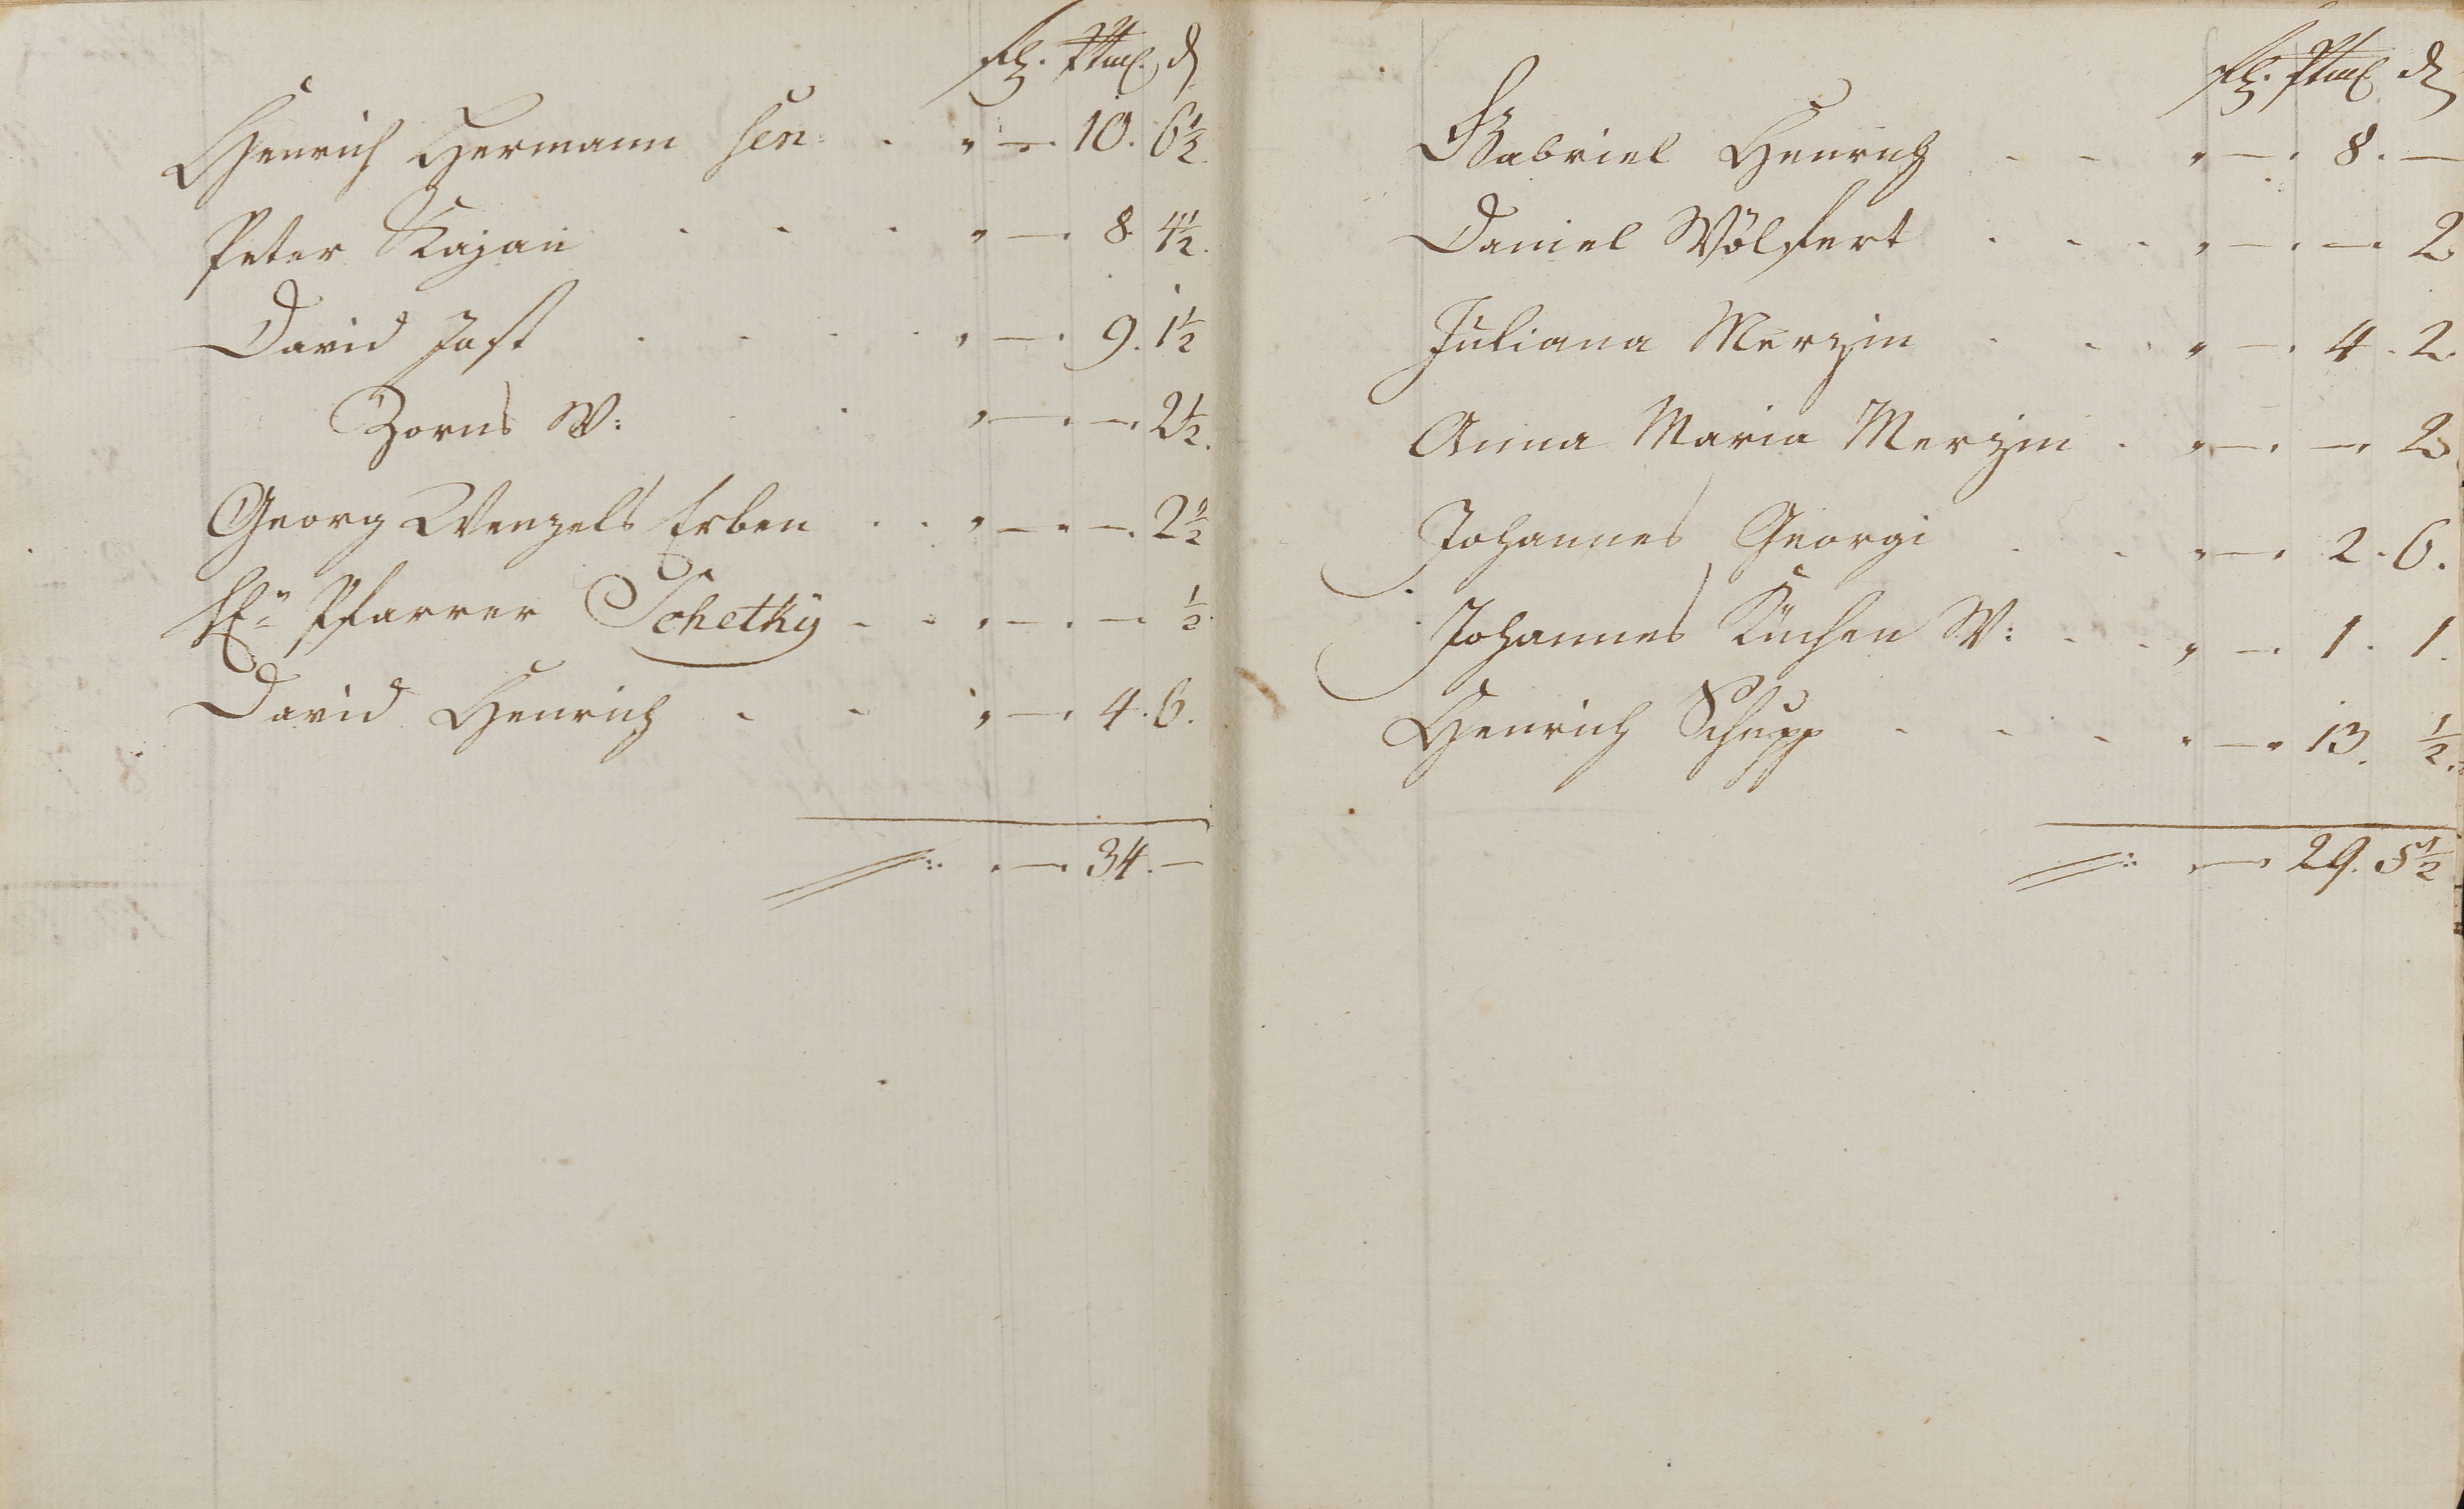 fl. Stml. d
Henrich Hermann sen: . „ — 10. 6½
Peter Kajan . . . „ — . 8. 4½.
David Jost . . . . „ — . 9. 1½
Zorns W: . . „ — . — . 2½.
Georg Wenzels Erben . . „ — . — . 2½
Hr. Pfarrer Schetky - - „ — . — ½
David Henrich - - „ — . 4. 6.
„ — . 34. —
fl. Stml. d
Gabriel Henrich - - „ — . 8. —
Daniel Wölfert . - - „ — . — . 2
Juliana Merzin - - . „ — . 4. 2.
Anna Maria Merzin . „ — . — . 2
Johannes Georgi . - „ — . 2. 6.
Johannes Küchen W: - - „ — . 1. 1.
Henrich Schupp - - - „ — . 13. ½.
„ — 29. 5½